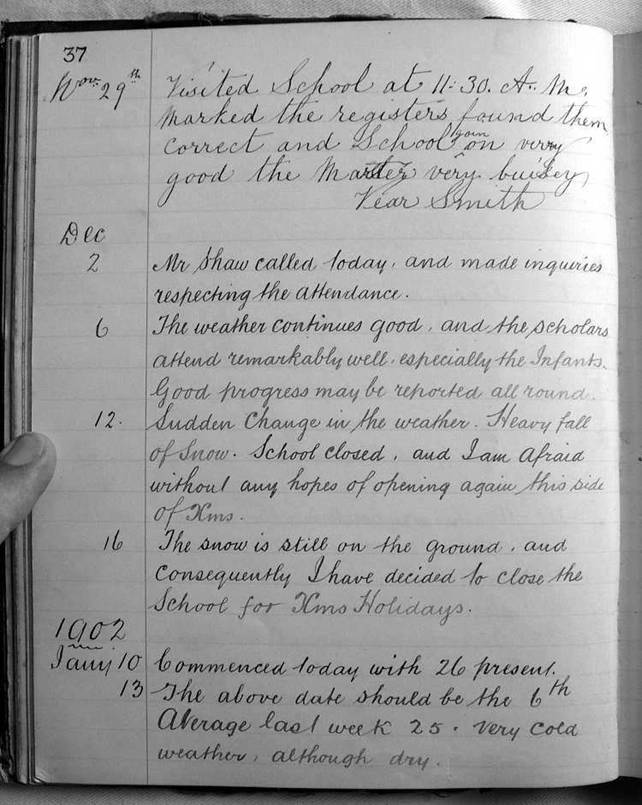 37
Nov. 29th Visited School at 11-30. A. M.
Marked the registers found them
correct and School goin on verry
good the Master very buisey
Vear Smith
Dec
2 Mr Shaw called today, and made inquiries
respecting the attendance.
6 The weather continues good, and the scholars
attend remarkably well, especially the Infants.
Good progress may be reported all round.
12. Sudden change in the weather. Heavy fall
of Snow. School closed, and I am afraid
without any hopes of opening again this side
of Xms.
16 The snow is still on the ground, and
consequently I have decided to close the
School for Xms Holidays.
1902
Jany 10 Commenced today with 26 present.
13 The above date should be the 6th
Average last week 25. Very cold
weather, although dry.